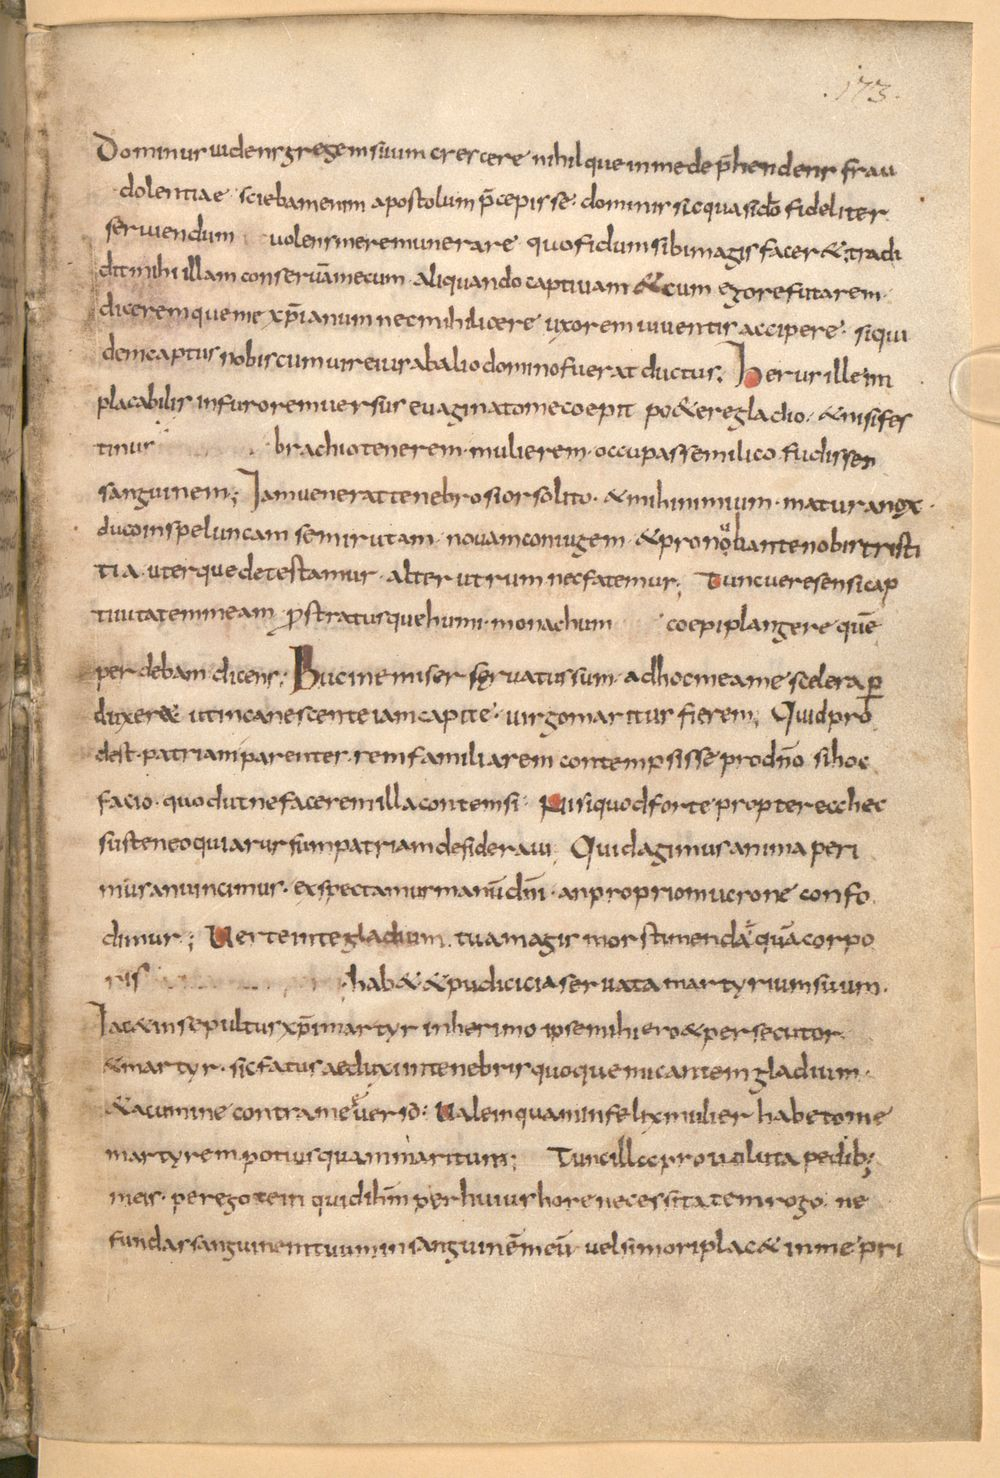 .173.
Dominus uidens gregem suum crescere nihilque in me dep̄hendens frau
dolentiae sciebam enim apostolum p̄cepisse · dominis sic quasi dō fideliter
seruiendum uolens me remunerare quo fidum sibi magis facer& ; tradi
dit mihi illam conseruā mecum · aliquando captiuam & cum ego refutarem
dicerem que me xp̄ianum nec mihi licere uxorem uiuentis accipere · siqui
dem captus nobiscum uir eius ab alio domino fuerat ductus ; herus ille in
placabilis in furorem uersus euaginato me coepit pe&ere gladio · & nisi fes
tinus brachio tenerem · mulierem · occupassem ilico fudisset
sanguinem ; Iam uenerat tenebrosior solito · & mihi nimium · matura nox
duco in speluncam semirutam nouam coniugem & pronobante nobis tristi
tia · uterque detestamur · alter utrum nec fatemur ; Tunc uere sensi cap
tiuitatem meam p̄stratusque humi · monachum coepi plangere quē
perdebam dicens ; Hucine miser seruatus sum · ad hoc me a me scelera per
duxer& ut incanescente iam capite · uirgo maritus fierem ; Quid pro
dest · patriam parentes · rem familiarem contempsisse pro dn̄o si hoc
facio · quod ut ne facerem illa contemsi · Nisi quod forte propterea hec
susteneo quia rursum patriam desideraui Quid agimus anima peri
mus an uincimus · exspectamus manū dn̄i · an proprio mucrone confo
dimur ; Uerte in te gladium tua magis mors timenda quā corpo
ris hab& & pudicicia seruata martyrium suum ·
Iac& insepultus xp̄i martyr in herimo ipse mihi ero & persecutor
& martyr · sic fatus aeduxi in tenebris quoque micantem gladium ·
& acumine contra me uerso : Uale inquam infelix mulier habeto me
martyrem potius quam maritum ; Tunc illa prouoluta pedib;
meis · per ego te inquid ih̄m per huius hore necessitatem rogo · ne
fundas sanguinem tuum in sanguinē meū uel si mori plac& in me pri